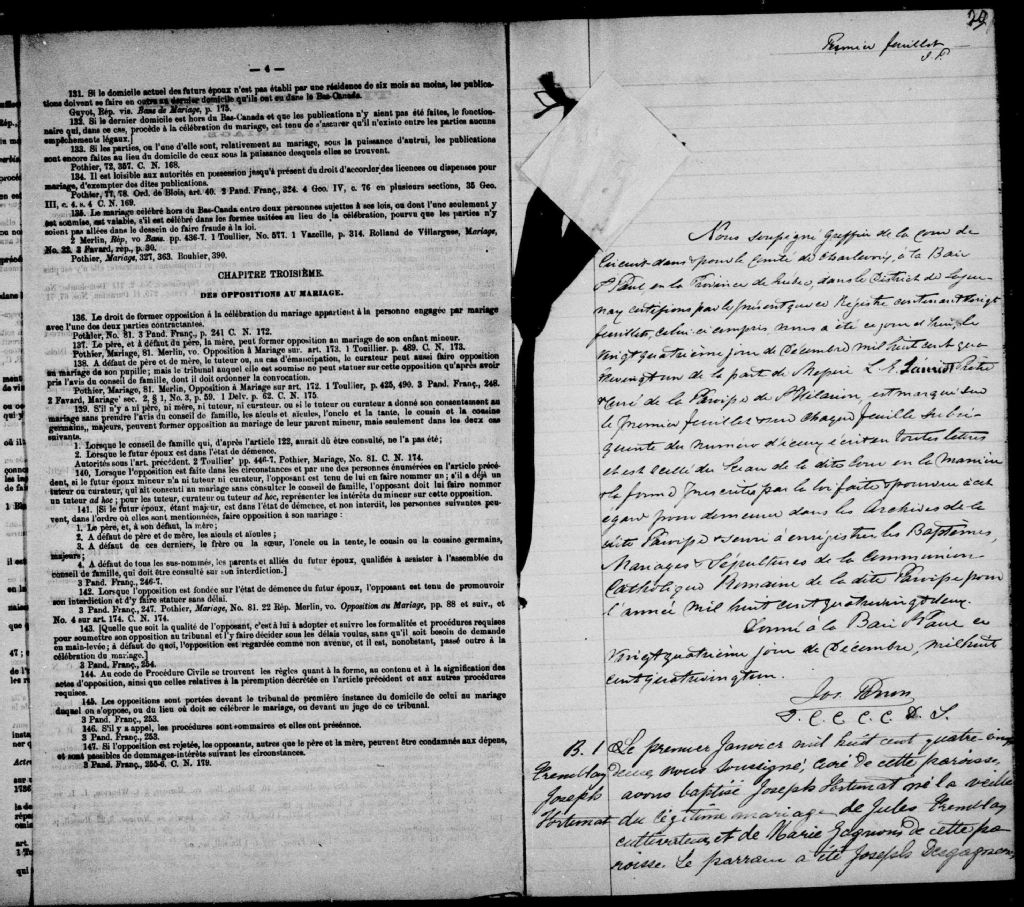 — 4 —
131. Si le domicile actuel des futurs époux n'est pas établi par une résidence de six mois au moins, les publica-
tions doivent se faire en outre au dernier domicile qu'ils ont eu dans le Bas-Canada.
Guyot, Rép. vis. Bans de Mariage, p. 175.
132. Si le dernier domicile est hors du Bas-Canada et que les publications n'y aient pas été faites, le fonction-
naire qui, dans ce cas, procède à la célébration du mariage, est tenu de s'assurer qu'il n'existe entre les parties aucuns
empêchements légaux.]
133. Si les parties, ou l'une d'elle sont, relativement au mariage, sous la puissance d'autrui, les publications
sont encore faites au lieu du domicile de ceux sous la puissance desquels elles se trouvent.
Pothier, 72, 357. C. N. 168.
134. Il est loisible aux autorités en possession jusqu'à présent du droit d'accorder des licences ou dispenses pour
mariage, d'exempter des dites publications.
Pothier, 77, 78. Ord. de Blois, art. 40. 2 Pand. Franç., 324. 4 Geo. IV, c. 76 en plusieurs sections, 35 Geo.
III, c. 4. s. 4 C. N. 169.
135. Le mariage célébré hors du Bas-Canada entre deux personnes sujettes à ses lois, ou dont l'une seulement y
est soumise, est valable, s'il est célébré dans les formes usitées au lieu de la célébration, pourvu que les parties n'y
soient pas allées dans le dessein de faire fraude à la loi.
2 Merlin, Rép, vo Bans. pp. 436-7. 1 Toullier, No. 577. 1 Vazeille, p. 314. Rolland de Villargues, Mariage,
No. 22. 3 Favard, rep., p. 30.
Pothier, Mariage, 327, 363. Rouhier, 390.
CHAPITRE TROISIÈME.
DES OPPOSITIONS AU MARIAGE.
136. Le droit de former opposition à la célébration du mariage appartient à la personne engagée par mariage
avec l'une des deux parties contractantes.
Pothier, No. 81. 3 Pand. Franç., p. 241 C. N. 172.
137. Le père, et à défaut du père, la mère, peut former opposition au mariage de son enfant mineur.
Pothier, Mariage, 81. Merlin, vo. Opposition à Mariage sur. art. 173. 1 Toullier, p. 489. C. N. 173.
138. A défaut de père et de mère, le tuteur ou, au cas d'émancipation, le curateur peut aussi faire opposition
au mariage de son pupille; mais le tribunal auquel elle est soumise ne peut statuer sur cette opposition qu'après avoir
pris l'avis du conseil de famille, dont il doit ordonner la convocation.
Pothier, Mariage, 81. Merlin, Opposition à Mariage sur art. 172. 1 Toullier, p. 425, 490. 3 Pand. Franç., 248.
2 Favard, Mariage' sec. 2, § 1, No. 3, p. 59. 1 Delv. p. 62. C. N. 175.
139. S'il n'y a ni père, ni mère, ni tuteur, ni curateur, ou si le tuteur ou curateur a donné son consentement au
mariage sans prendre l'avis du conseil de famille, les aïeuls et aïeules, l'oncle et la tante, le cousin et la cousine
germains, majeurs, peuvent former opposition au mariage de leur parent mineur, mais seulement dans les deux cas
suivants.
1. Lorsque le conseil de famille qui, d'après l'article 122, aurait dû être consulté, ne l'a pas été;
2. Lorsque le futur époux est dans l'état de démence.
Autorités sous l'art. précédent. 2 Toullier' pp. 446-7. Pothier, Mariage, No. 81. C. N. 174.
140. Lorsque l'opposition est faite dans les circonstances et par une des personnes énumérées en l'article précé-
dent, si le futur époux mineur n'a ni tuteur ni curateur, l'opposant est tenu de lui en faire nommer un; s'il a déjà un
tuteur ou curateur, qui ait consenti au mariage sans consulter le conseil de famille, l'opposant doit lui faire nommer
un tuteur ad hoc; pour les tuteur, curateur ou tuteur ad hoc, représenter les intérêts du mineur sur cette opposition.
141. [Si le futur époux, étant majeur, est dans l'état de démence, et non interdit, les personnes suivantes peu-
vent, dans l'ordre où elles sont mentionnées, faire opposition à son mariage :
1. Le père, et, à son défaut, la mère;
2. A défaut de père et de mère, les aïeuls et aïeules;
3. A défaut de ces derniers, le frère ou la sœur, l'oncle ou la tante, le cousin ou la cousine germains,
majeurs;
4. A défaut de tous les sus-nommés, les parents et alliés du futur époux, qualifiés à assister à l'assemblée du
conseil de famille, qui doit être consulté sur son interdiction.]
3 Pand. Franç., 246-7.
142. Lorsque l'opposition est fondée sur l'état de démence du futur époux, l'opposant est tenu de promouvoir
son interdiction et d'y faire statuer sans délai.
3 Pand. Franç., 247. Pothier, Mariage, No. 81. 22 Rép. Merlin, vo. Opposition au Mariage, pp. 88 et suiv., et
No. 4 sur art. 174. C. N. 174.
143. [Quelque soit la qualité de l'opposant, c'est à lui à adopter et suivre les formalités et procédures requises
pour soumettre son opposition au tribunal et l'y faire décider sous les délais voulus, sans qu'il soit besoin de demande
en main-levée; à défaut de quoi, l'opposition est regardée comme non avenue, et il est, nonobstant, passé outre à la
célébration du mariage.]
3 Pand. Franç., 254.
144. Au code de Procédure Civile se trouvent les règles quant à la forme, au contenu et à la signification des
actes d'opposition, ainsi que celles relatives à la péremption décrétée en l'article précédent et aux autres procédures
requises.
145. Les oppositions sont portées devant le tribunal de première instance du domicile de celui au mariage
duquel on s'oppose, ou du lieu où doit se célébrer le mariage, ou devant un juge de ce tribunal.
3 Pand. Franç., 253.
146. S'il y a appel, les procédures sont sommaires et elles ont préséance.
3 Pand. Franç., 253.
147. Si l'opposition est rejetée, les opposants, autres que le père et la mère, peuvent être condamnés aux dépens,
et sont passibles de dommages-intérêts suivant les circonstances.
3 Pand. Franç., 255-6. C. N. 179.
29
Premier feuillet
J. P.
Nous soussigné Greffier de la cour de
Circuit dans & pour le Comté de Charlevoix, à la Baie
St Paul en la Province de Québec, dans le District de Sague-
nay certifions par le présent que ce Registre contenant Vingt
feuillets, celui-ci compris nous a été ce jour d'hui, le
Vingt quatrième jour de Décembre mil huit cent qua
trevingt un de la part de Messire L. E. Lauriot Prêtre
& Curé de la Paroisse de St Hilarion, est marqué sur
le premier feuillet & sur chaque feuillet subsé-
quente du numéro d'iceux écrit en toutes lettres
et est scellé du Sceau de la dite Cour en la Manière
& la forme prescrites par la loi faite & pourvue à cet
égard pour demeurer dans les Archives de la
dite Paroisse & servir à enregistrer les Baptêmes,
Mariages & Sépultures de la Communion
Catholique Romaine de la dite Paroisse pour
l'année Mil huit cent quatrevingt deux.
Donné à la Baie St Paul ce
Vingt quatrième jour de Décembre, mil huit
cent quatrevingt un.
D. C. C. C. C. D. S.
B. 1 Le premier Janvier mil huit cent quatre-vingt
Tremblay deux, nous soussigné, curé de cette paroisse,
Joseph avons baptisé Joseph Fortunat né la veille
Fortunat du légitime mariage de Jules Tremblay
cultivateur, et de Marie Gagnon de cette pa
roisse. Le parrain a été Joseph Desgagnon